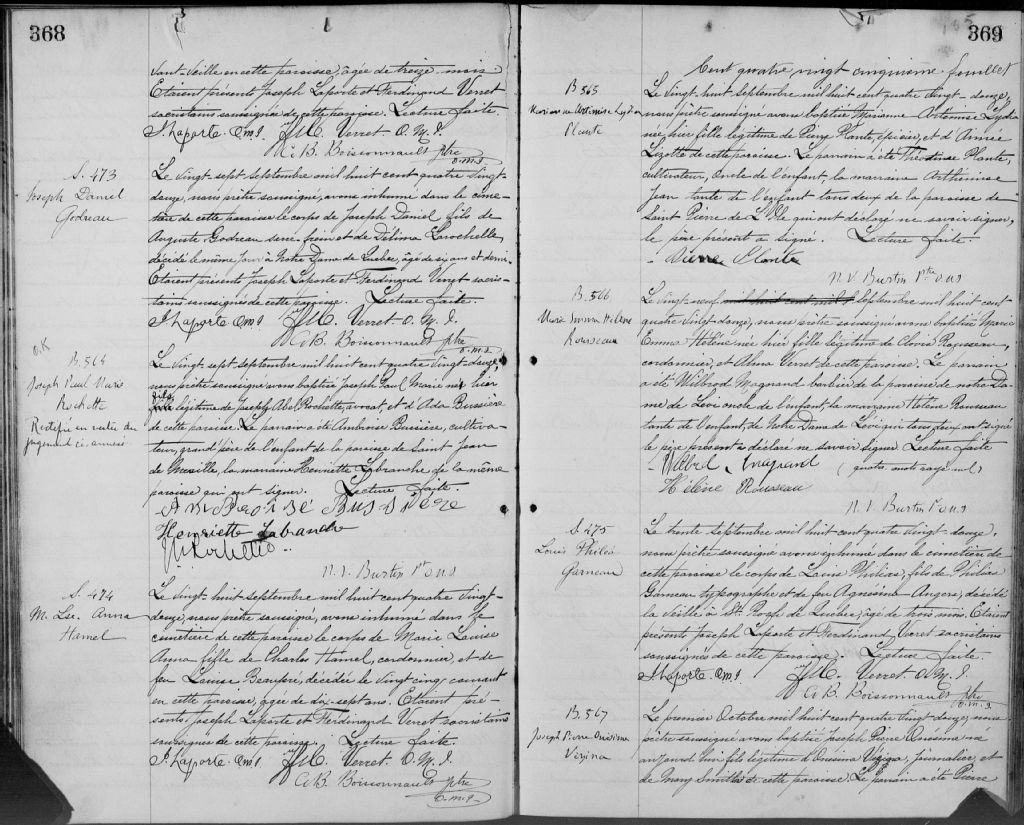 368
avant-veille en cette paroisse, âgée de treize mois
Etaient présents Joseph Laporte et Ferdinand Verret
sacristains soussignés de cette paroisse. Lecture faite.
J. Laporte O.M.I. F.M.C. Verret O.M.I.
C. B. Boissonnault ptre
o.m.i.
S. 473
Joseph Daniel
Godreau
Le vingt sept septembre mil huit cent quatre vingt
douze, nous prêtre soussigné, avons inhumé dans le cime-
tière de cette paroisse le corps de Joseph Daniel fils de
Auguste Godreau et de Délima Larochelle,
décédé le même jour à Notre Dame de Québec, âgé de six ans et demi.
Etaient présents Joseph Laporte et Ferdinand Verret sacris-
tains soussignés de cette paroisse. Lecture faite.
J. Laporte O.M.I. F.M.C. Verret O.M.I.
C. B. Boissonnault ptre
o.m.i.
O.K
B. 564
Joseph Paul Marie
Rochette
Rectifié en vertu du
jugement ci-annexé
Le vingt sept septembre mil huit cent quatre vingt-douze,
nous prêtre soussigné avons baptisé Joseph Paul Marie né hier
fils
légitime de Joseph Abel Rochette, avocat, et d'Ada Bussière
de cette paroisse. Le parrain a été Ambroise Bussière, cultiva-
teur, grand'père de l'enfant de la paroisse de Saint Jean
de la marraine Henriette Labranche de la même
paroisse qui ont signé. Lecture faite.
Ambroise Bussière
Henriette Labranche
Rochette
N. V. Burtin Ptre O.M.I
S. 474
M. Lse. Anna
Hamel
Le vingt huit septembre mil huit cent quatre vingt-
douze, nous prêtre soussigné, avons inhumé dans le
cimetière de cette paroisse le corps de Marie Louise
Anna fille de Charles Hamel, cordonnier, et de
feu Louise Beaupré, décédée le vingt cinq courant
en cette paroisse, âgée de dix-sept ans. Etaient pré-
sents Joseph Laporte et Ferdinand Verret sacristains
soussignés de cette paroisse. Lecture faite.
J. Laporte O.M.I. F.M.C. Verret O.M.I.
C. B. Boissonnault ptre
o.m.i.
185
369
Cent quatre vingt cinquième feuillet
B. 565
Marianne Arthémise Lydia
Plante
Le vingt-huit septembre mil huit cent quatre vingt-douze,
nous prêtre soussigné avons baptisé Marianne Arthémise Lydia
née hier fille légitime de Pierre Plante épicier, et d'Aimée
Lizotte de cette paroisse. Le parrain a été Plante,
cultivateur, oncle de l'enfant, la marraine Arthémise
Jean tante de l'enfant tous deux de la paroisse de
Saint Pierre de L'Ile qui ont déclaré ne savoir signer,
le père présent a signé. Lecture faite.
Pierre Plante
N. V. Burtin Ptre O.M.I
B. 566
Marie Emma Hélène
Rousseau
Le vingt-neuf mil huit cent septembre mil huit cent
quatre vingt-douze, nous prêtre soussigné avons baptisé Marie
Emma Hélène née hier fille légitime de Rousseau,
cordonnier, et Alma Verret de cette paroisse. Le parrain
a été Wilbrod Magnand barbier de la paroisse de notre Da-
me de Lévi oncle de l'enfant, la marraine Hélène Rousseau
tante de l'enfant, de Notre Dame de Lévi qui tous deux ont signé
le père présent a déclaré ne savoir signer Lecture faite
Magnand (quatre mots rayés nuls)
Hélène Rousseau
N. V. Burtin Ptre O.M.I
S. 475
Louis Philéas
Garneau
Le trente septembre mil huit cent quatre vingt douze,
nous prêtre soussigné avons inhumé dans le cimetière de
cette paroisse le corps de Louis Philéas, fils de Philéas
Garneau typographe et de feu Agnesime Angers, décédé
la veille à St. Roch de Québec, âgé de trois mois. Etaient
présents Joseph Laporte et Ferdinand Verret sacristains
soussignés de cette paroisse. Lecture faite.
J. Laporte O.M.I. F.M.C. Verret O.M.I.
C. B. Boissonnault ptre
o.m.i.
B. 567
Joseph Pierre Onésime
Vézina
Le premier Octobre mil huit cent quatre vingt-douze, nous
prêtre soussigné avons baptisé Joseph Pierre Onésime né
aujourd'hui fils légitime d'Onésime Vézina, journalier, et
de Mary Smith de cette paroisse. Le parrain a été Pierre